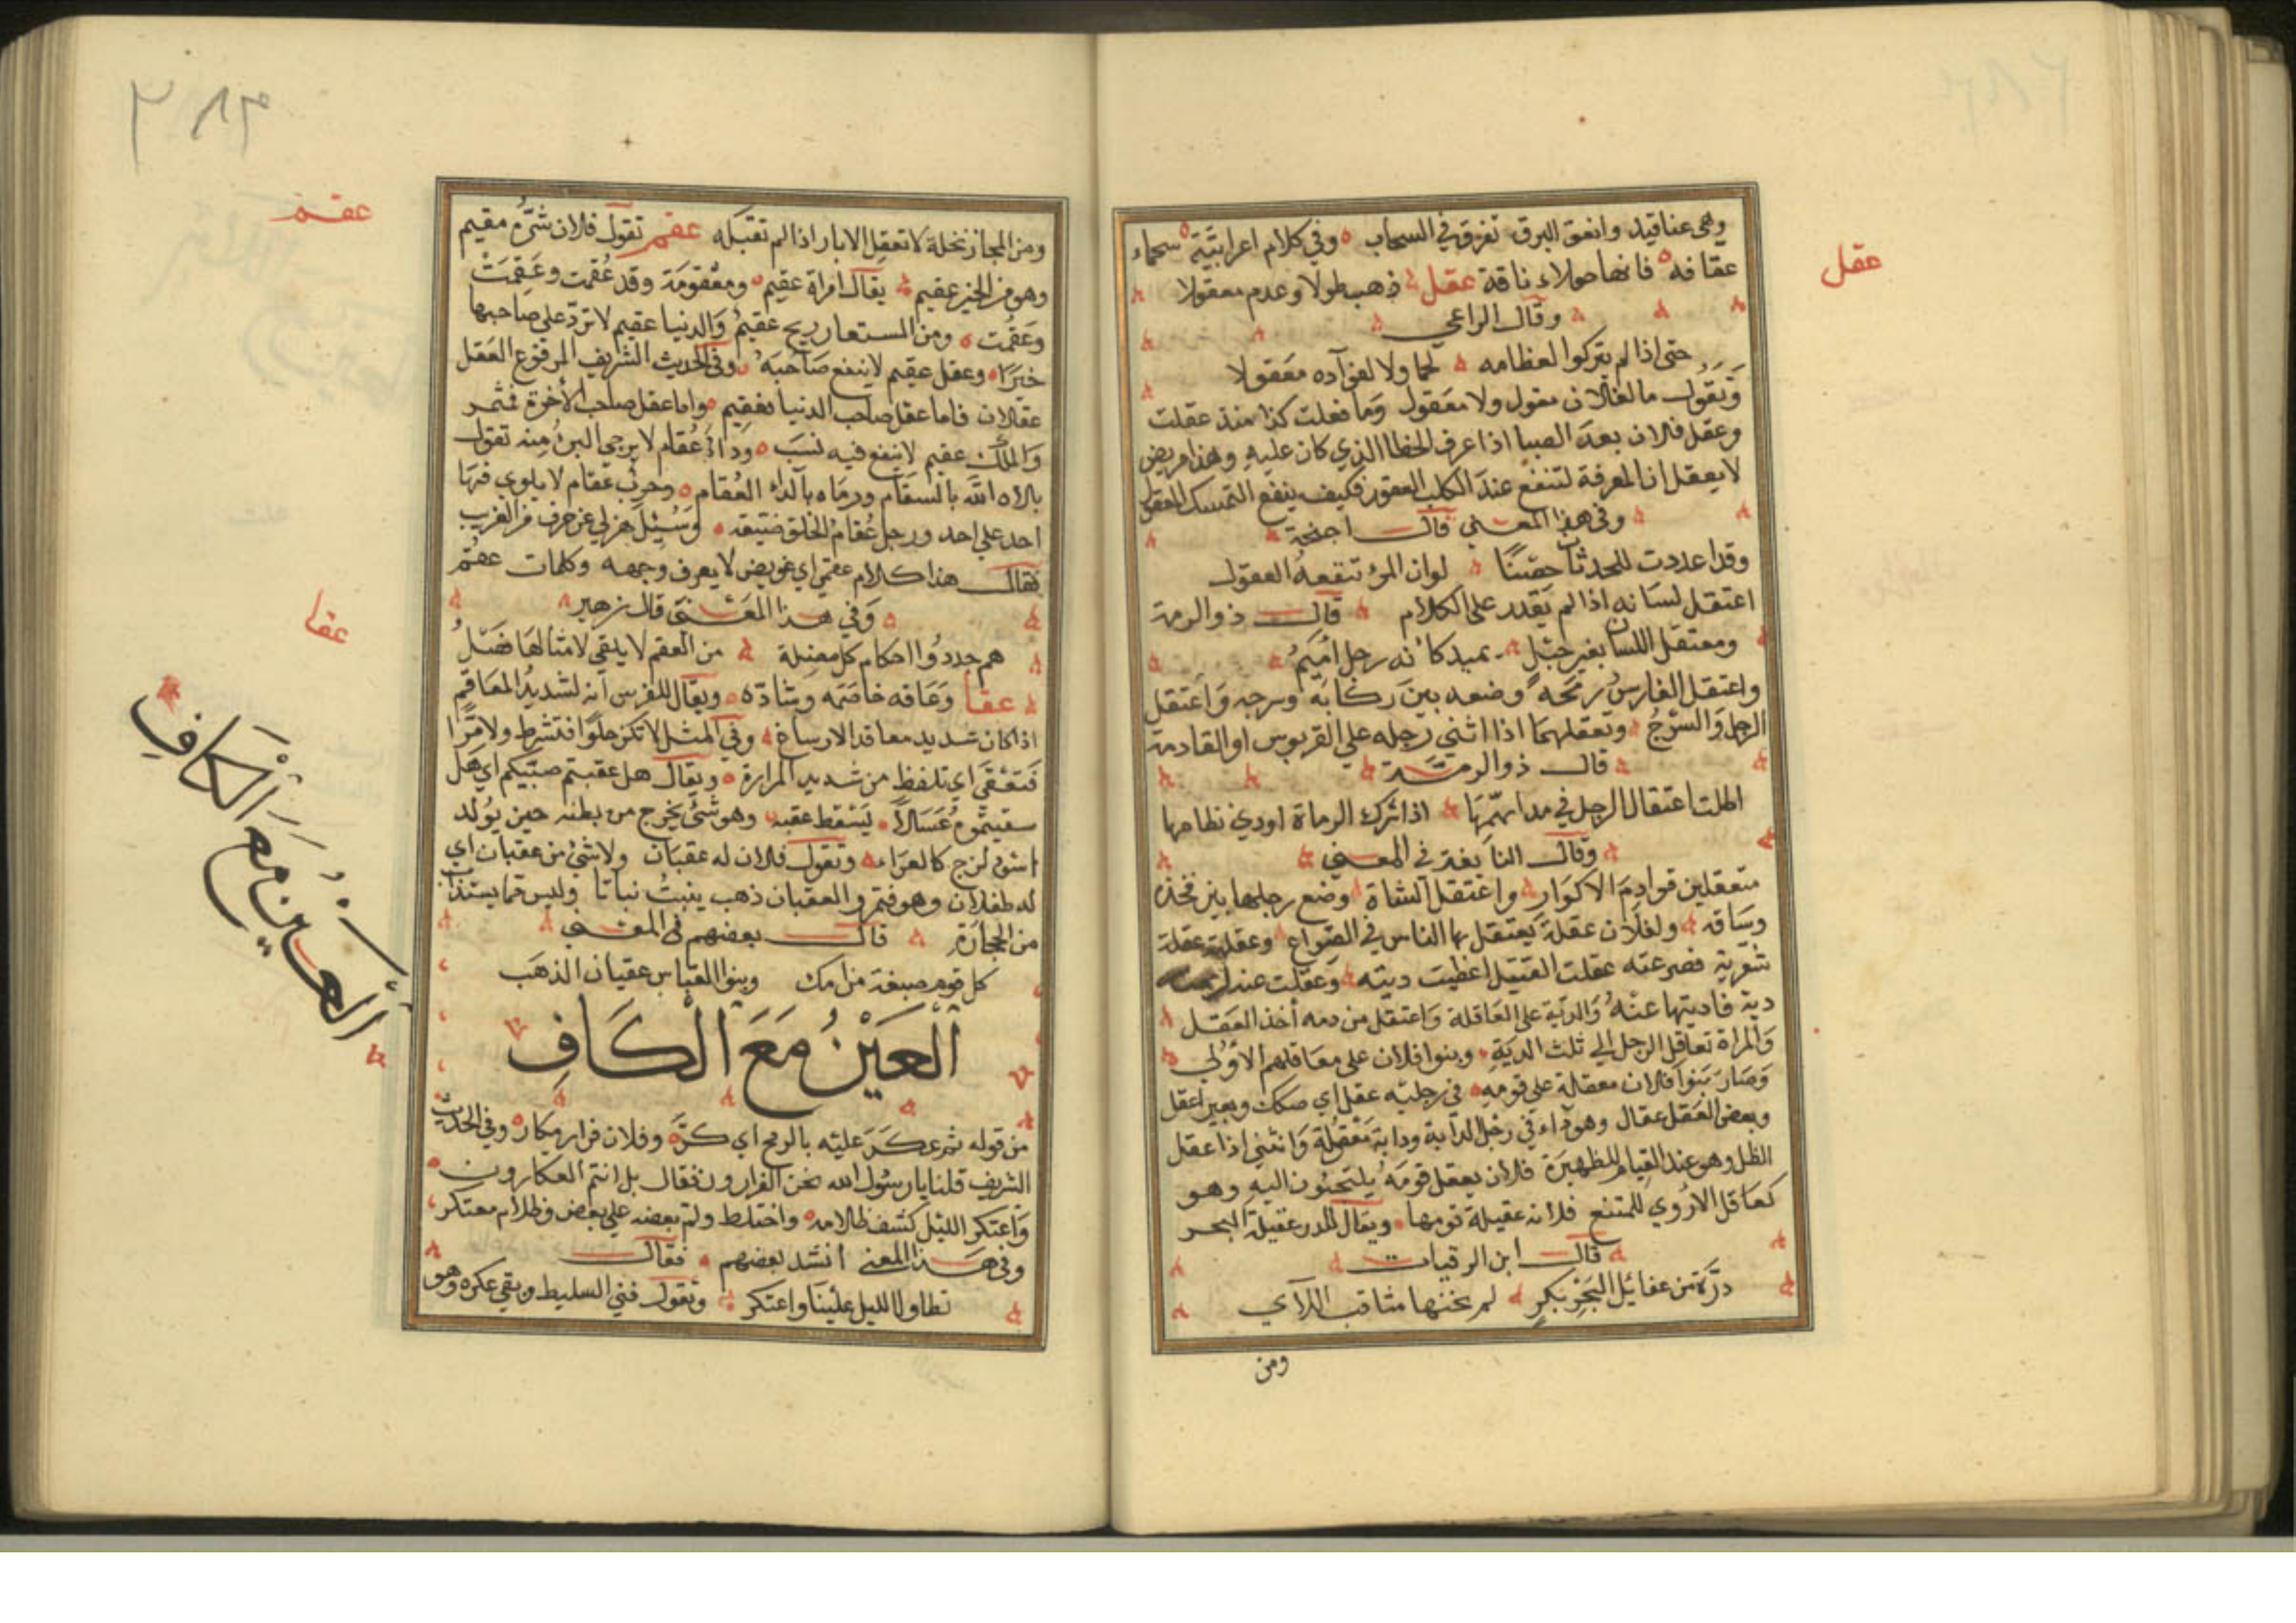 عقل
وهى عناقيد وانعق البرق تفرق في السحاب وفي كلام اعرابية سحماء
عقافه فانها حولاء ناقة عقل ذهب طولا وعدم معقولا
وقال الراعي
حتى اذا لم يتركوا لعظامه لحما ولا لفؤآده معقولا
وتقول ما لفلان مقول ولا معقول وما فعلت كذا منذ عقلت
وعقل فلان بعد الصبا اذا عرف الخطا الذي كان عليه وهذا مريض
لا يعقل ان المعرفة لتنفع عند الكلب العقور فكيف ينفع التمسك
وفي هذا المعنى قال
وقد اعددت للحدثان حصنا لو ان المرء تنفعه العقول
اعتقل لسانه اذا لم يقدر على الكلام قال ذو الرمة
ومعتقل اللسان بغير خبل يميد كانه رجل اميم
واعتقل الفارس رمحه وضعه بين ركابه وسرجه واعتقل
الرحل والسرج وتعقلهما اذا اثنى رجله علي القربوس او القادمة
قال ذو الرمة
اطلت اعتقال الرحل في مدلهمها اذا شرك الموماة اودي نظامها
وقال النابغة في المعنى
متعقلين قوادم الاكوار واعتقل الشاة وضع رجلها بين فخذه
وساقه ولفلان عقلة يعتقل بها الناس في الصراع وعقلته عقلة
شغربية فصرعته عقلت القتيل اعطيت ديته وعقلت عند
دية فاديتها عنه والدية على العاقلة واعتقل من دمه أخذ العقل
والمراة تعاقل الرجل الي ثلث الدية وبنوا فلان على معاقلهم الاولى
وصار بنوا فلان معقلة على قومه في رجليه عقل اي صكك وبعير اعقل
وبعض العقل عقال وهو داء في رجل الدابة ودابة معقولة وانثنى اذا عقل
الظل وهو عند القيام للظهيرة فلان معقل قومه يلتجئون اليه وهو
كعاقل الاروي للمتنع فلانه عقيلة قومها ويقال للدر عقيلة البحر
قال ابن الرقيات
درة من عقائل البحر بكر لم تخنها مثاقب اللآي
ومن
٢٨٣
عقم
ومن المجاز نخلة لا تعقل الابار اذا لم تقبله عقم تقول فلان شره مقيم
وهو من الخير عقيم يقال امراة عقيم ومعقومة وقد عُقمت وعَقِمَت
وعَقُمت ومن المستعار ريح عقيم والدنيا عقيم لا ترد على صاحبها
خيرا وعقل عقيم لا ينفع صاحبه وفي الحديث الشريف المرفوع العقل
عقلان فاما عقل صاحب الدنيا فعقيم واما عقل صاحب الأخرة فمثمر
والملك عقيم لا ينفع فيه نسب وداء عقام لا يرجى البرء منه تقول
بلاه الله بالسقام ورماه بآلداء العقام وحرب عقام لا يلوي فيها
احد علي احد ورجل عقام الخلق ضيقه وسئيل هزلي عن حرف من الغريب
فقال هذا كلام عقمي اي غويض لا يعرف وجهه وكلمات عقم
وفي هذا المعنى قال زهير
هم جددوا احكام كل مضلة من العقم لا يلقى لامثالها فصل
عقا
عقا وعاقه خاصمه وشادّه ويقال للفرس انه لشديد المعاقم
اذا كان شديد معاقد الارساغ وفي المثل لا تكن حلوا فتشرط ولا مرّا
فتعقى اي تلفظ من شديد المرارة ويقال هل عقيتم صبيكم اي هل
سقيتموه عسلا ليسقط عقيه وهو شئ يخرج من بطنه حين يولد
اسود لزج كالغراء وتقول فلان له عقيان ولا شئ من عقيان اي
له طفلان وهو فقير والعقيان ذهب ينبت نباتا وليس مما يستذاب
من الحجارة قال بعضهم في المعنى
كل قوم صيغة من آمك وبنوا العباس عقيان الذهب
العين مع الكاف
العين مع الكاف
من قوله ثم عكر عليه بالرمح اي كرّ وفلان فرار مكار وفي الحديث
الشريف قلنا يا رسول الله نحن الفرارون فقال بل انتم العكارون
واعتكر الليل كثف ظلامه واختلط ولم بعضه علي بعض وظلام معتكر
وفي هذا المعني انشد بعضهم فقال
تطاول الليل علينا واعتكر وتقول فني السليط وبقي عكره وهو